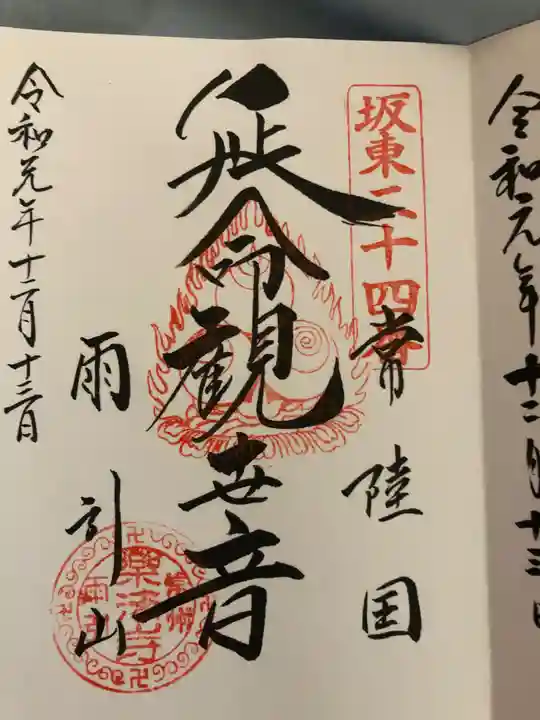 令和元年十二月十三日
坂東二十四番
常陸国
延命観世音
雨引山
常州
楽法寺
雨引
令和元年十二月十三日